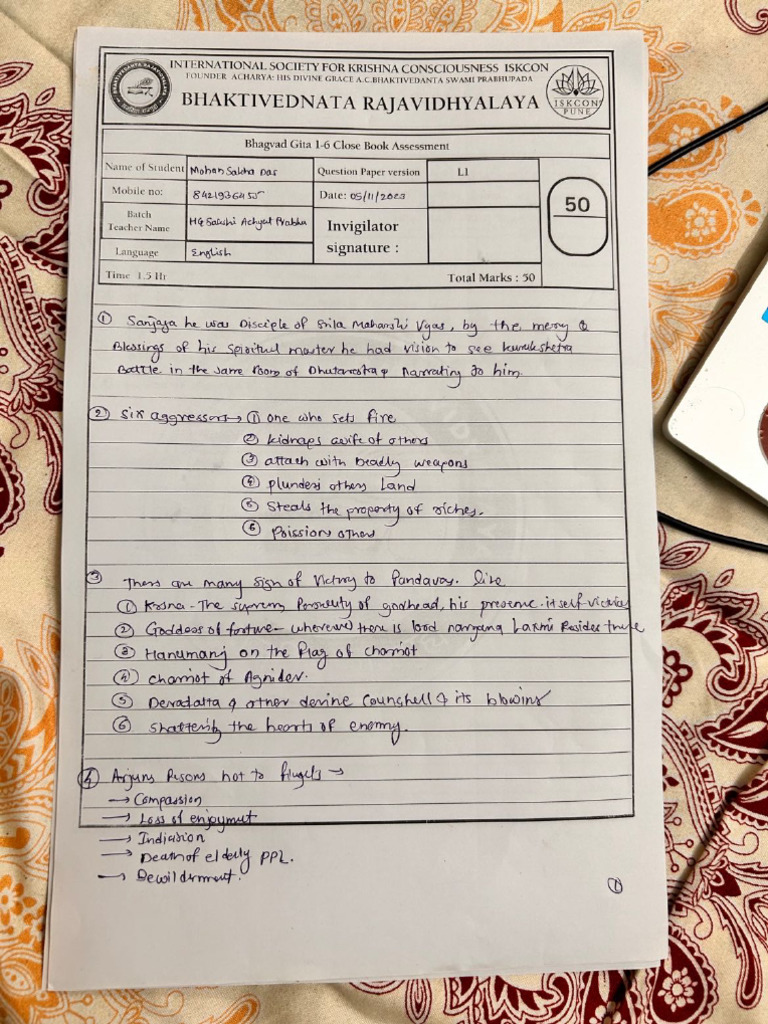 INTERNATIONAL SOCIETY FOR KRISHNA CONSCIOUSNESS ISKCON
FOUNDER ACHARYA: HIS DIVINE GRACE A.C.BHAKTIVEDANTA SWAMI PRABHUPADA
BHAKTIVEDNATA RAJAVIDHYALAYA
ISKCON
PUNE
Bhagvad Gita 1-6 Close Book Assessment
Name of Student Mohan Sakha Das Question Paper version L1
Mobile no: Date: 05/11/2023
50
Batch Teacher Name HG Achyut Prabhu Invigilator signature :
Language English
Time 1.5 Hr Total Marks : 50
① Sanjaya he was Disciple of Srila Maharshi Vyas, by the mercy &
Blessings of his spiritual master he had vision to see kurukshetra
Battle in the same room of & Narrating to him.
② Six aggressors → ① one who sets fire
② kidnaps wife of others
③ attach with Deadly weapons
④ plunders others Land
⑤ Steals the property of riches.
⑥ Poission others
③ There are many sign of Victory to Pandavas. like
① Krsna - The supreme of his presence itself
② Goddess of fortune - wherever there is lord narayana Laxmi Resides there
③ Hanumanji on the Flag of chariot
④ chariot of Agnidev.
⑤ Devadatta & other devine & its
⑥ Shattering the hearts of enemy.
④ Arjuns not to →
→ Compassion
→ Loss of enjoyment
→
→ Death of elderly PPL.
→ Bewilderment.
①